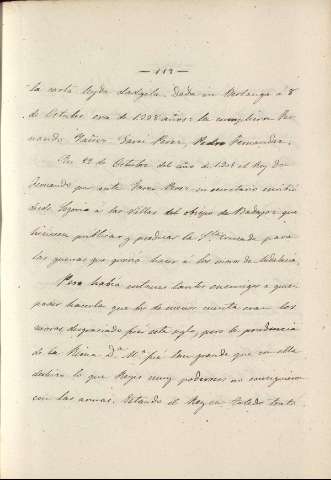 — 119 —
la carta leyda dadgela. Dada en Berlanga a 8
de Octubre era de 1338 años: la cumplieron Fer-
nando Yañez Garci Perez, Pedro Fernandez.
En 12 de Octubre del año de 1301 el Rey Dn
Fernando por ante Garci Perez su secretario escribió
desde Segovia á las Villas del Obispo de Badajoz que
hiciesen publicar y predicar la Sta Cruzada para
las guerras que queria hacer á los moros de Andalucia.
Pero habia entonces tantos enemigos a quien
poder hacerla que los de menos cuenta eran los
moros desgraciado fué este siglo, pero la prudencia
de la Reina Da Ma fué tan grande que con ella
deshizo lo que Reyes muy poderosos no consiguieron
con las armas. Estando el Rey en Toledo trató